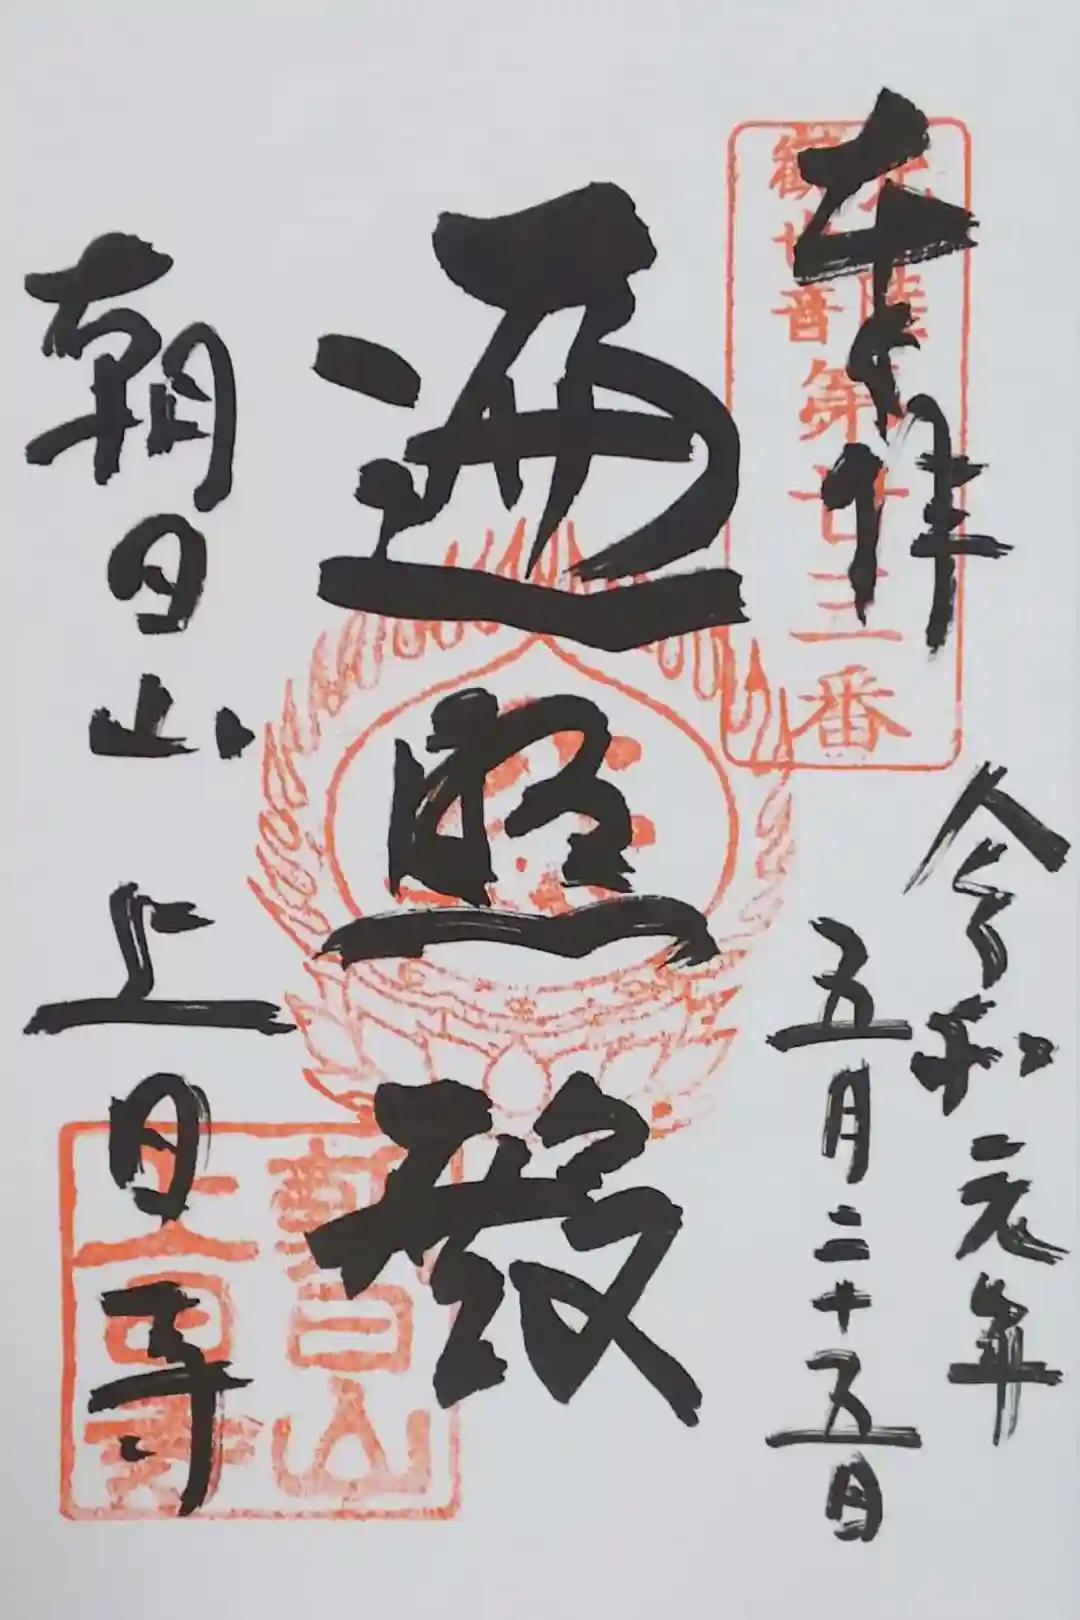 奉拝
北陸
観世音
第廿三番
令和元年
五月二十五日
遍照殿
朝日山
上日寺
朝日山
上日寺